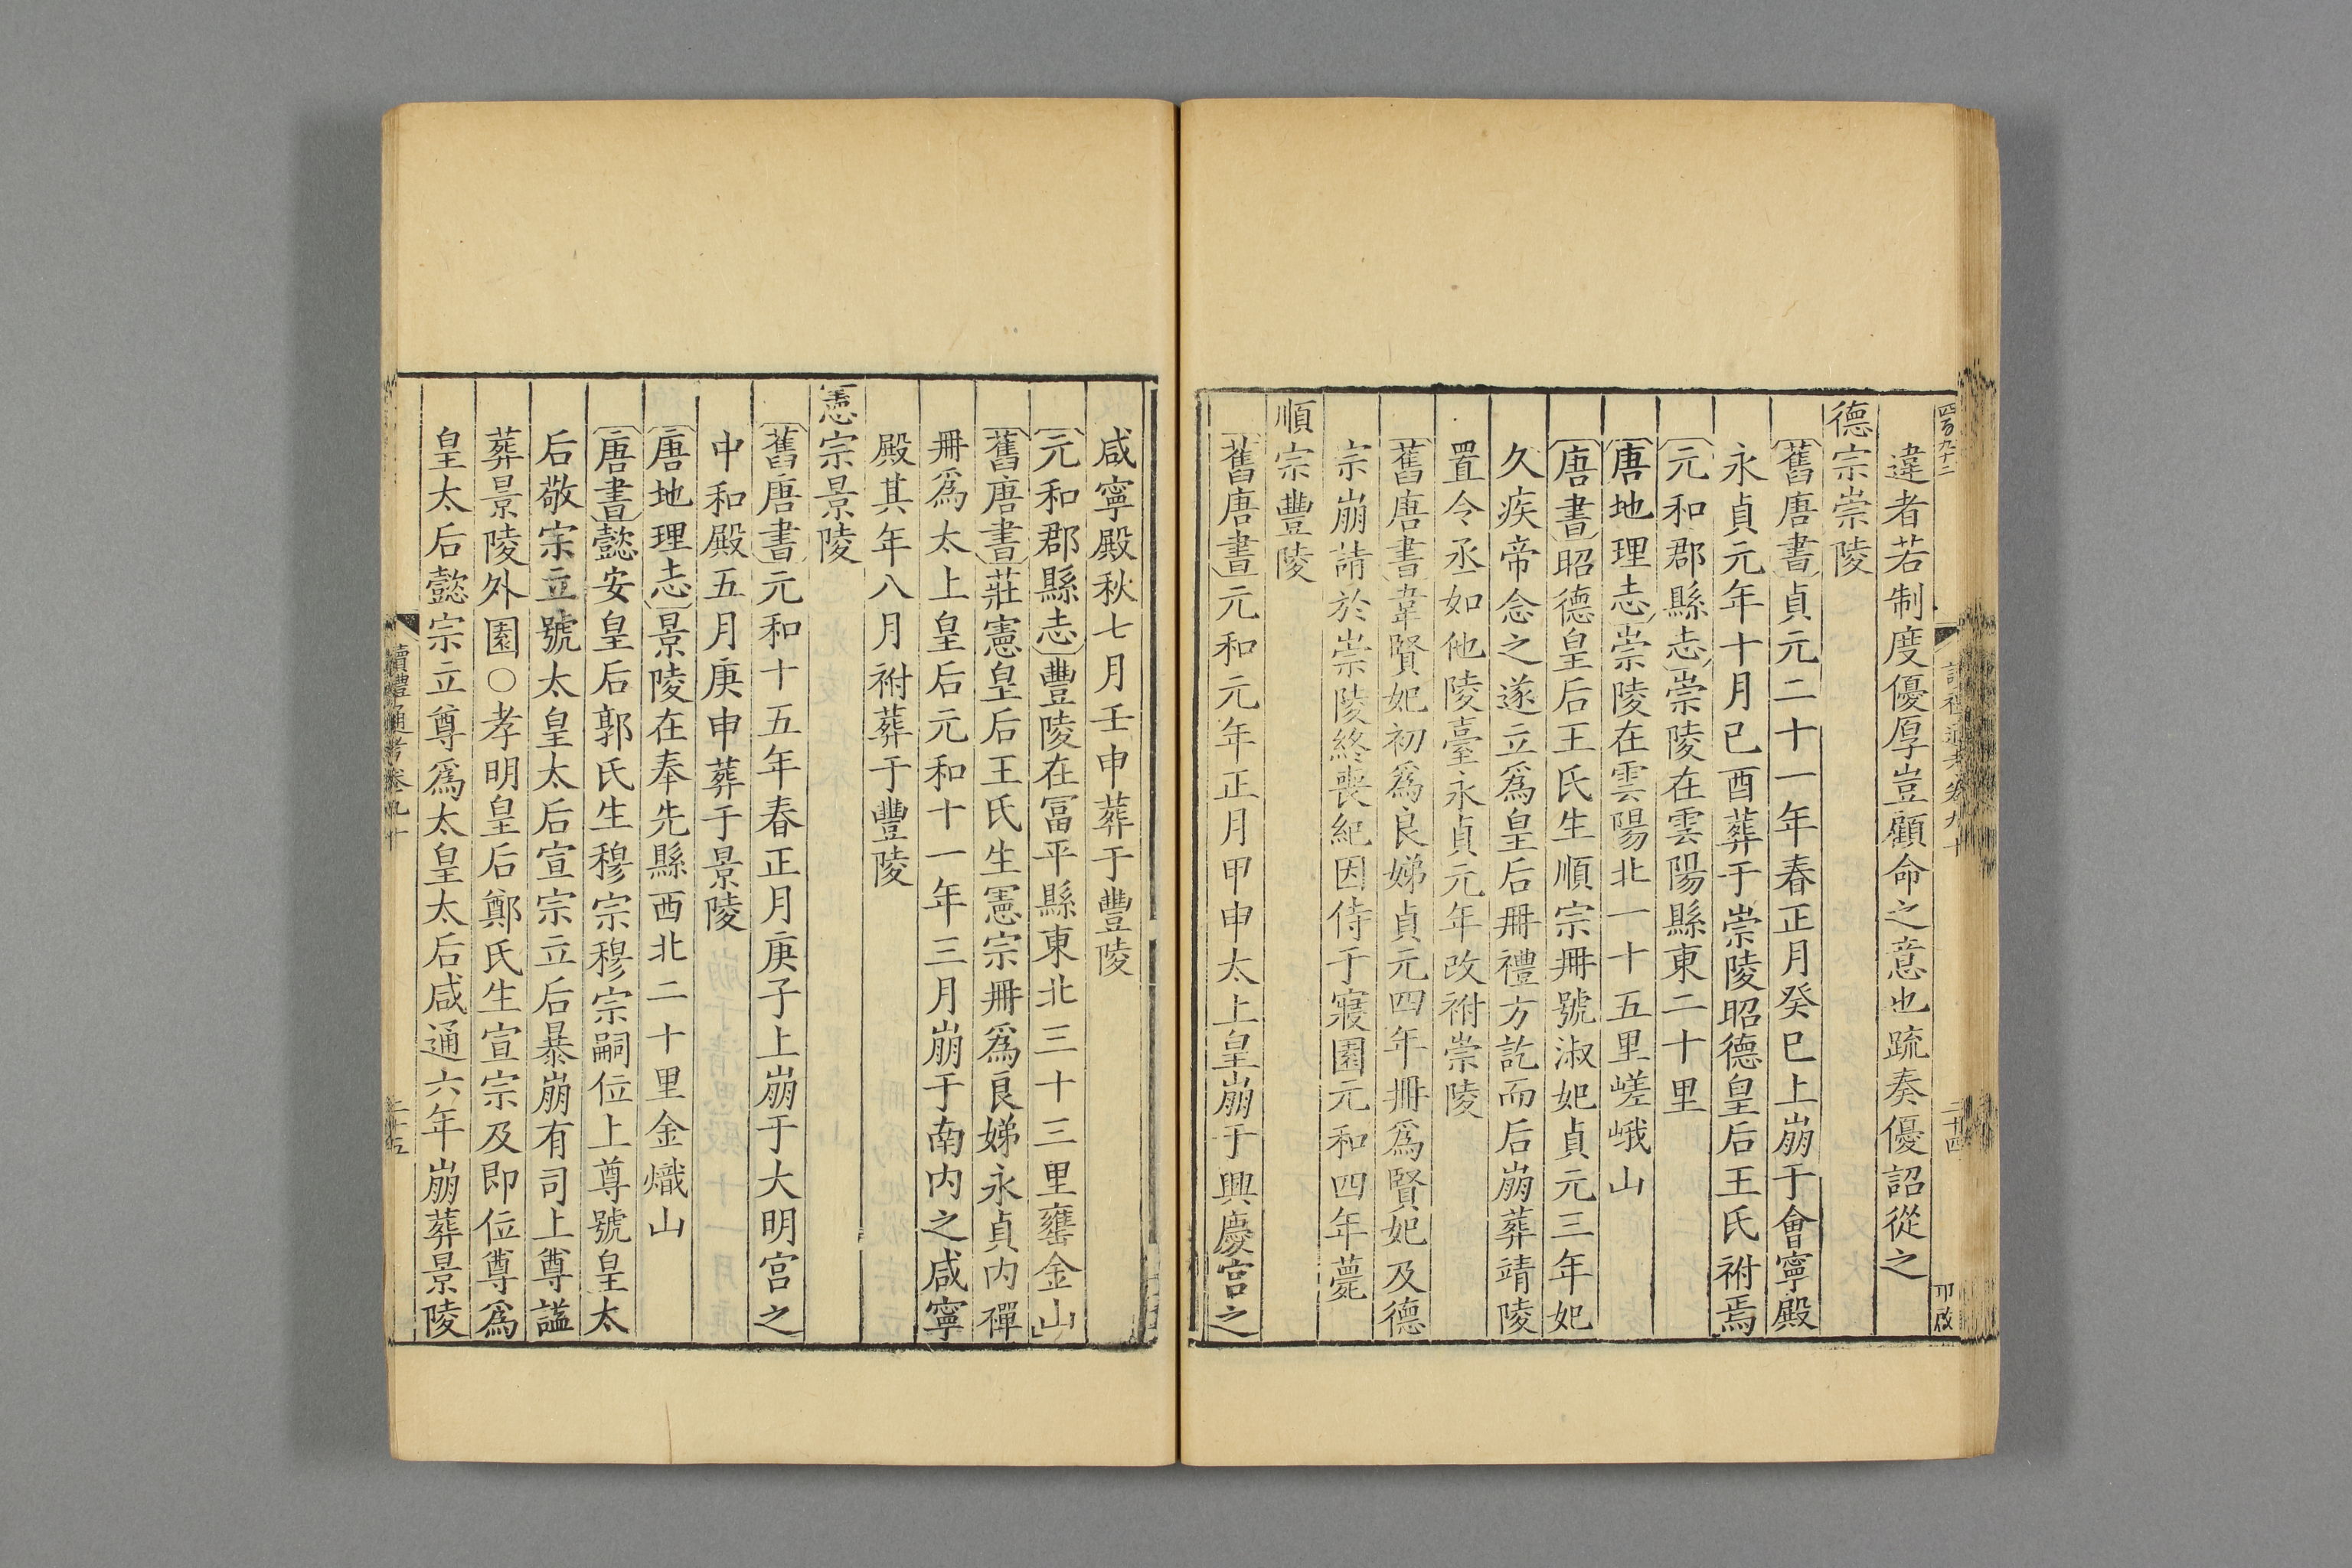 違者若制度優厚豈顧命之意也疏奏優詔從之
德宗崇陵
〔舊唐書〕貞元二十一年春正月癸巳上崩于會寧殿
永貞元年十月已酉葬于崇陵昭德皇后王氏祔焉
〔元和郡縣志〕崇陵在雲陽縣東二十里
〔唐地理志〕崇陵在雲陽北一十五里嵯峨山
〔唐書〕昭德皇后王氏生順宗冊號淑妃貞元三年妃
久疾帝念之遂立爲皇后冊禮方訖而后崩葬靖陵
置令丞如他陵臺永貞元年改祔崇陵
〔舊唐書〕韋賢妃初爲良娣貞元四年冊爲賢妃及德
宗崩請於崇陵終喪紀因侍于寢園元和四年薨
順宗豐陵
〔舊唐書〕元和元年正月甲申太上皇崩于興慶宮之
咸寧殿秋七月壬申葬于豐陵
〔元和郡縣志〕豐陵在冨平縣東北三十三里罋金山
〔舊唐書〕莊憲皇后王氏生憲宗冊爲良娣永貞內禪
冊爲太上皇后元和十一年三月崩于南內之咸寧
殿其年八月祔葬于豐陵
憲宗景陵
〔舊唐書〕元和十五年春正月庚子上崩于大明宮之
中和殿五月庚申葬于景陵
〔唐地理志〕景陵在奉先縣西北二十里金熾山
〔唐書〕懿安皇后郭氏生穆宗穆宗嗣位上尊號皇太
后敬宗立號太皇太后宣宗立后暴崩有司上尊謚
葬景陵外園○孝明皇后鄭氏生宣宗及即位尊爲
皇太后懿宗立尊爲太皇太后咸通六年崩葬景陵
讀禮通考卷九十